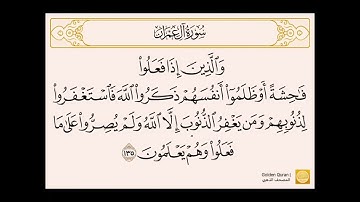 سُورَةُ آلِ عِمۡرَانَ
وَٱلَّذِينَ إِذَا فَعَلُواْ
فَٰحِشَةً أَوۡ ظَلَمُوٓاْ أَنفُسَهُمۡ ذَكَرُواْ ٱللَّهَ فَٱسۡتَغۡفَرُواْ
لِذُنُوبِهِمۡ وَمَن يَغۡفِرُ ٱلذُّنُوبَ إِلَّا ٱللَّهُ وَلَمۡ يُصِرُّواْ عَلَىٰ مَا
فَعَلُواْ وَهُمۡ يَعۡلَمُونَ ١٣٥
Golden Quran |
المصحف الذهبي